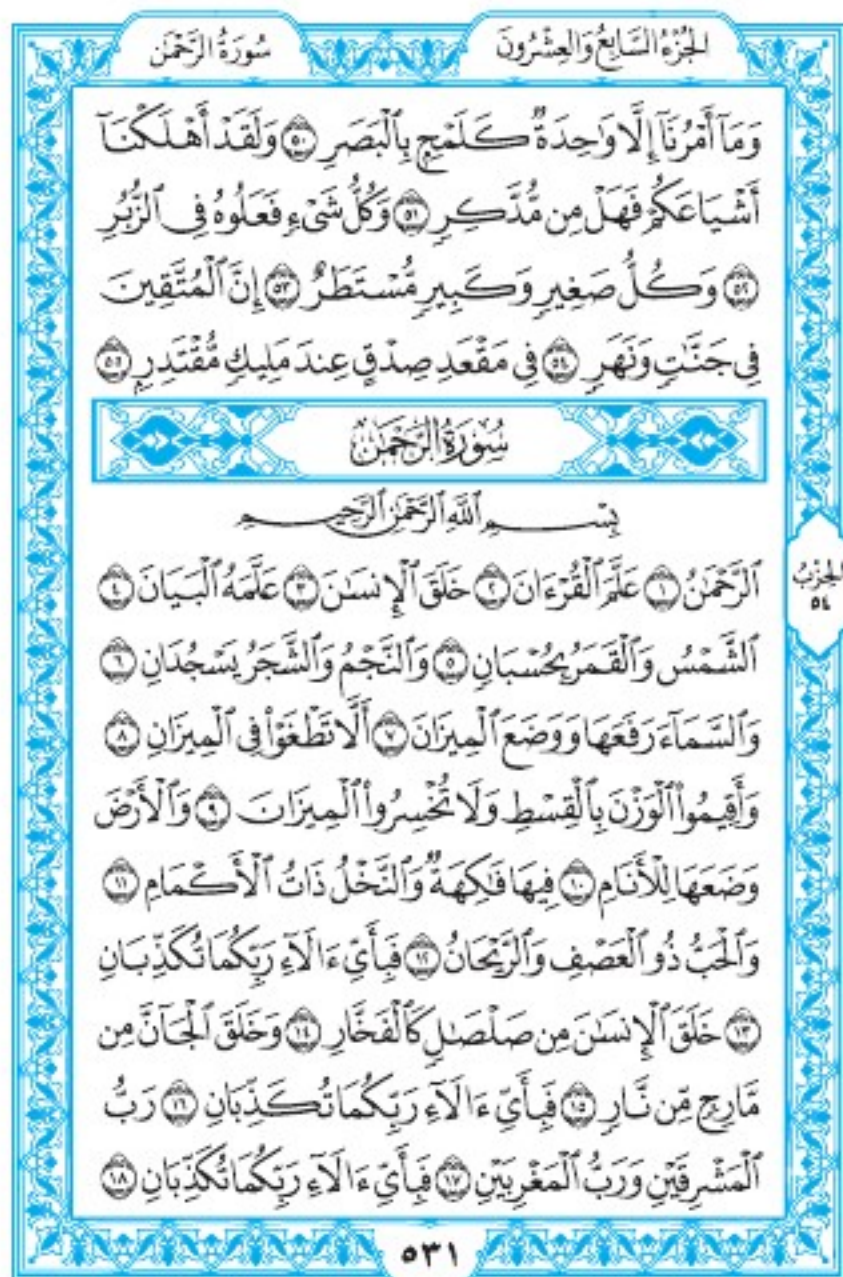 الجُزْءُ السَّابِعُ وَالعِشْرُونَ
سُورَةُ الرَّحْمَٰن
وَمَآ أَمْرُنَآ إِلَّا وَٰحِدَةٌ كَلَمْحِۭ بِٱلْبَصَرِ ۝٥٠ وَلَقَدْ أَهْلَكْنَآ
أَشْيَاعَكُمْ فَهَلْ مِن مُّدَّكِرٍ ۝٥١ وَكُلُّ شَىْءٍ فَعَلُوهُ فِى ٱلزُّبُرِ
۝٥٢ وَكُلُّ صَغِيرٍ وَكَبِيرٍ مُّسْتَطَرٌ ۝٥٣ إِنَّ ٱلْمُتَّقِينَ
فِى جَنَّٰتٍ وَنَهَرٍ ۝٥٤ فِى مَقْعَدِ صِدْقٍ عِندَ مَلِيكٍ مُّقْتَدِرِۭ ۝٥٥
سُورَةُ الرَّحْمَٰن
بِسْمِ ٱللَّهِ ٱلرَّحْمَٰنِ ٱلرَّحِيمِ
ٱلرَّحْمَٰنُ ۝١ عَلَّمَ ٱلْقُرْءَانَ ۝٢ خَلَقَ ٱلْإِنسَٰنَ ۝٣ عَلَّمَهُ ٱلْبَيَانَ ۝٤
ٱلشَّمْسُ وَٱلْقَمَرُ بِحُسْبَانٍ ۝٥ وَٱلنَّجْمُ وَٱلشَّجَرُ يَسْجُدَانِ ۝٦
وَٱلسَّمَآءَ رَفَعَهَا وَوَضَعَ ٱلْمِيزَانَ ۝٧ أَلَّا تَطْغَوْا۟ فِى ٱلْمِيزَانِ ۝٨
وَأَقِيمُوا۟ ٱلْوَزْنَ بِٱلْقِسْطِ وَلَا تُخْسِرُوا۟ ٱلْمِيزَانَ ۝٩ وَٱلْأَرْضَ
وَضَعَهَا لِلْأَنَامِ ۝١٠ فِيهَا فَٰكِهَةٌ وَٱلنَّخْلُ ذَاتُ ٱلْأَكْمَامِ ۝١١
وَٱلْحَبُّ ذُو ٱلْعَصْفِ وَٱلرَّيْحَانُ ۝١٢ فَبِأَىِّ ءَالَآءِ رَبِّكُمَا تُكَذِّبَانِ
۝١٣ خَلَقَ ٱلْإِنسَٰنَ مِن صَلْصَٰلٍ كَٱلْفَخَّارِ ۝١٤ وَخَلَقَ ٱلْجَآنَّ مِن
مَّارِجٍ مِّن نَّارٍ ۝١٥ فَبِأَىِّ ءَالَآءِ رَبِّكُمَا تُكَذِّبَانِ ۝١٦ رَبُّ
ٱلْمَشْرِقَيْنِ وَرَبُّ ٱلْمَغْرِبَيْنِ ۝١٧ فَبِأَىِّ ءَالَآءِ رَبِّكُمَا تُكَذِّبَانِ ۝١٨
الحِزْبُ
٥٤
٥٣١